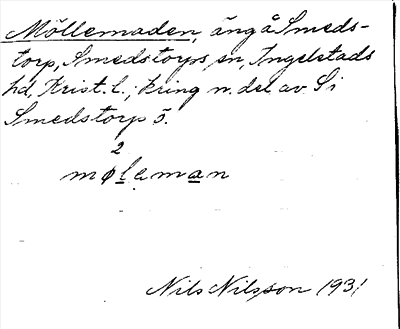 Möllemaden, äng å Smeds-
torp, Smedstorps sn, Ingelstads
hd, Krist. l.; kring n. del av S i
Smedstorp ö.
2
møl̲ema̲n
Nils Nilsson 1931